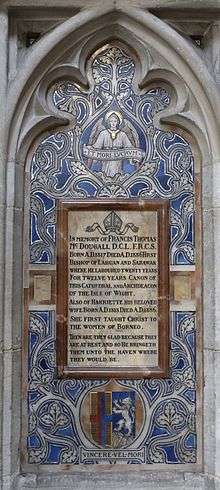 IN MEMORY OF FRANCIS THOMAS
MC DOUGALL D.C.L. F.R.C.S.
BORN A.D.1817 DIED A.D.1886 FIRST
BISHOP OF LABUAN AND SARAWAK
WHERE HE LABOURED TWENTY YEARS
FOR TWELVE YEARS CANON OF
THIS CATHEDRAL AND ARCHDEACON
OF THE ISLE OF WIGHT.
ALSO OF HARRIETTE HIS BELOVED
WIFE BORN A.D.1818 DIED A.D.1886.
SHE FIRST TAUGHT CHRIST TO
THE WOMEN OF BORNEO.
THEN ARE THEY GLAD BECAUSE THEY
ARE AT REST AND SO HE BRINGETH
THEM UNTO THE HAVEN WHERE
THEY WOULD BE.
VINCERE·VEL·MORI